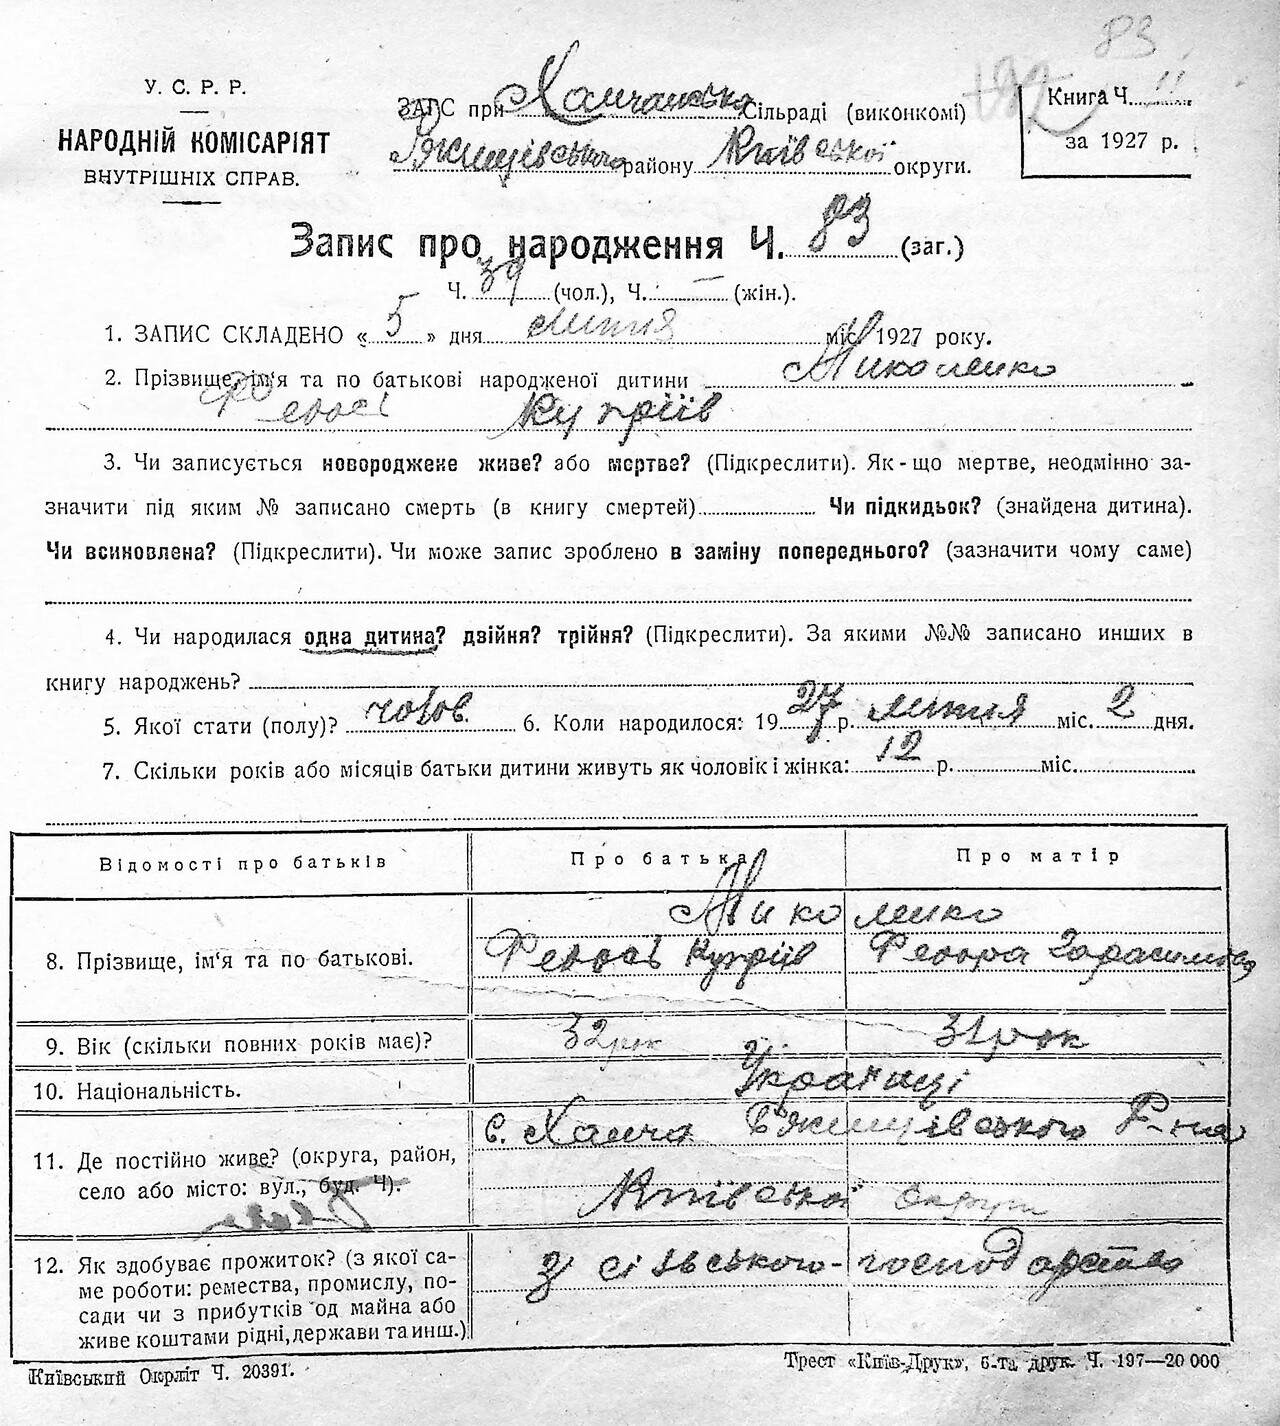 83
192
У. С. Р. Р.
НАРОДНІЙ КОМІСАРІЯТ
ВНУТРІШНІХ СПРАВ.
ЗАГС при Халчанська Сільраді (виконкомі)
Ржищівського району Київської округи.
Книга Ч. 11
за 1927 р.
Запис про народження Ч. 83 (заг.)
Ч. 39 (чол.), Ч. — (жін.).
1. ЗАПИС СКЛАДЕНО « 5 » дня липня міс. 1927 року.
2. Прізвище, ім'я та по батькові народженої дитини Миколенко
Федосі Купріїв
3. Чи записується новороджене живе? або мертве? (Підкреслити). Як-що мертве, неодмінно за-
значити під яким № записано смерть (в книгу смертей) Чи підкидьок? (знайдена дитина).
Чи всиновлена? (Підкреслити). Чи може запис зроблено в заміну попереднього? (зазначити чому саме)
4. Чи народилася одна дитина? двійня? трійня? (Підкреслити). За якими №№ записано инших в
книгу народжень?
5. Якої стати (полу)? чолов. 6. Коли народилося: 1927 р. липня міс. 2 дня.
7. Скільки років або місяців батьки дитини живуть як чоловік і жінка: 12 р. міс.
Відомості про батьків Про батька Про матір
Миколенко
8. Прізвище, ім'я та по батькові. Федось Купріїв Федора Гарасимова
9. Вік (скільки повних років має)? 32 рок 31 рок
10. Національність. Українці
с. Халча Ржищівського Р-на
11. Де постійно живе? (округа, район,
село або місто: вул., буд. Ч). Київської округи
12. Як здобуває прожиток? (з якої са- З сільського-господарства
ме роботи: ремества, промислу, по-
сади чи з прибутків од майна або
живе коштами рідні, держави та инш.)
Київський Окрліт Ч. 20391.
Трест «Київ-Друк», 6-та друк. Ч. 197—20 000